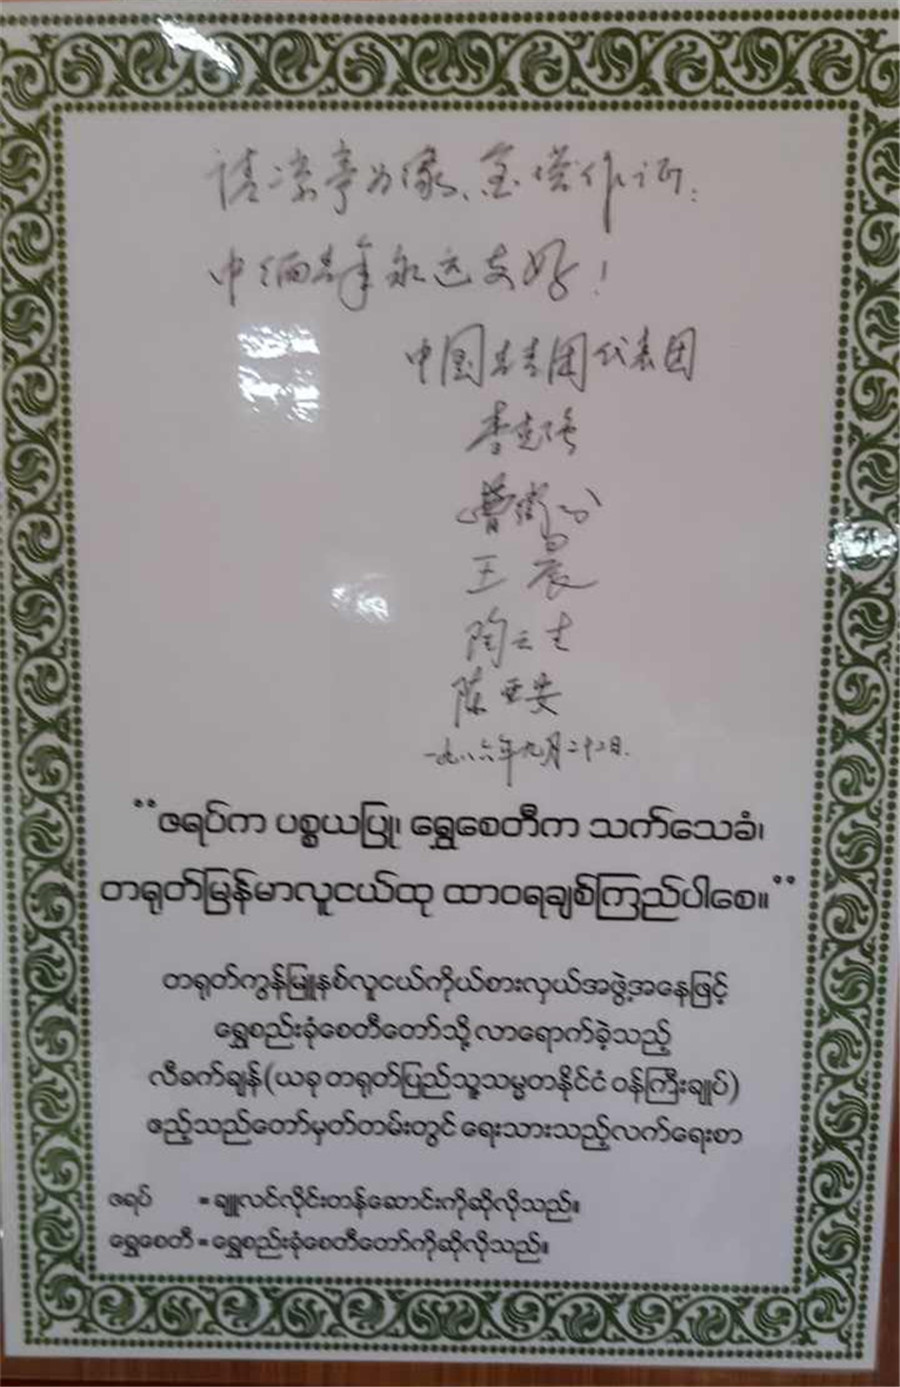 请凉亭为家、金塔作证:
中缅青年永远友好!
中国共青团代表团
李克强
王晨
陶云生
陈亚安
一九八六年九月二十二日.
“ဇရပ်က ပစ္စယပြု၊ ရွှေစေတီက သက်သေခံ၊
တရုတ်မြန်မာလူငယ်ထု ထာဝရချစ်ကြည်ပါစေ။”
တရုတ်ကွန်မြူနစ်လူငယ်ကိုယ်စားလှယ်အဖွဲ့အနေဖြင့်
ရွှေစည်းခုံစေတီတော်သို့ လာရောက်ခဲ့သည့်
လီခက်ချန်(ယခု တရုတ်ပြည်သူ့သမ္မတနိုင်ငံ ဝန်ကြီးချုပ်)
ဧည့်သည်တော်မှတ်တမ်းတွင် ရေးသားသည့်လက်ရေးစာ
ဇရပ် = ချူလင်လိုင်းတန်ဆောင်းကိုဆိုလိုသည်။
ရွှေစေတီ = ရွှေစည်းခုံစေတီတော်ကိုဆိုလိုသည်။